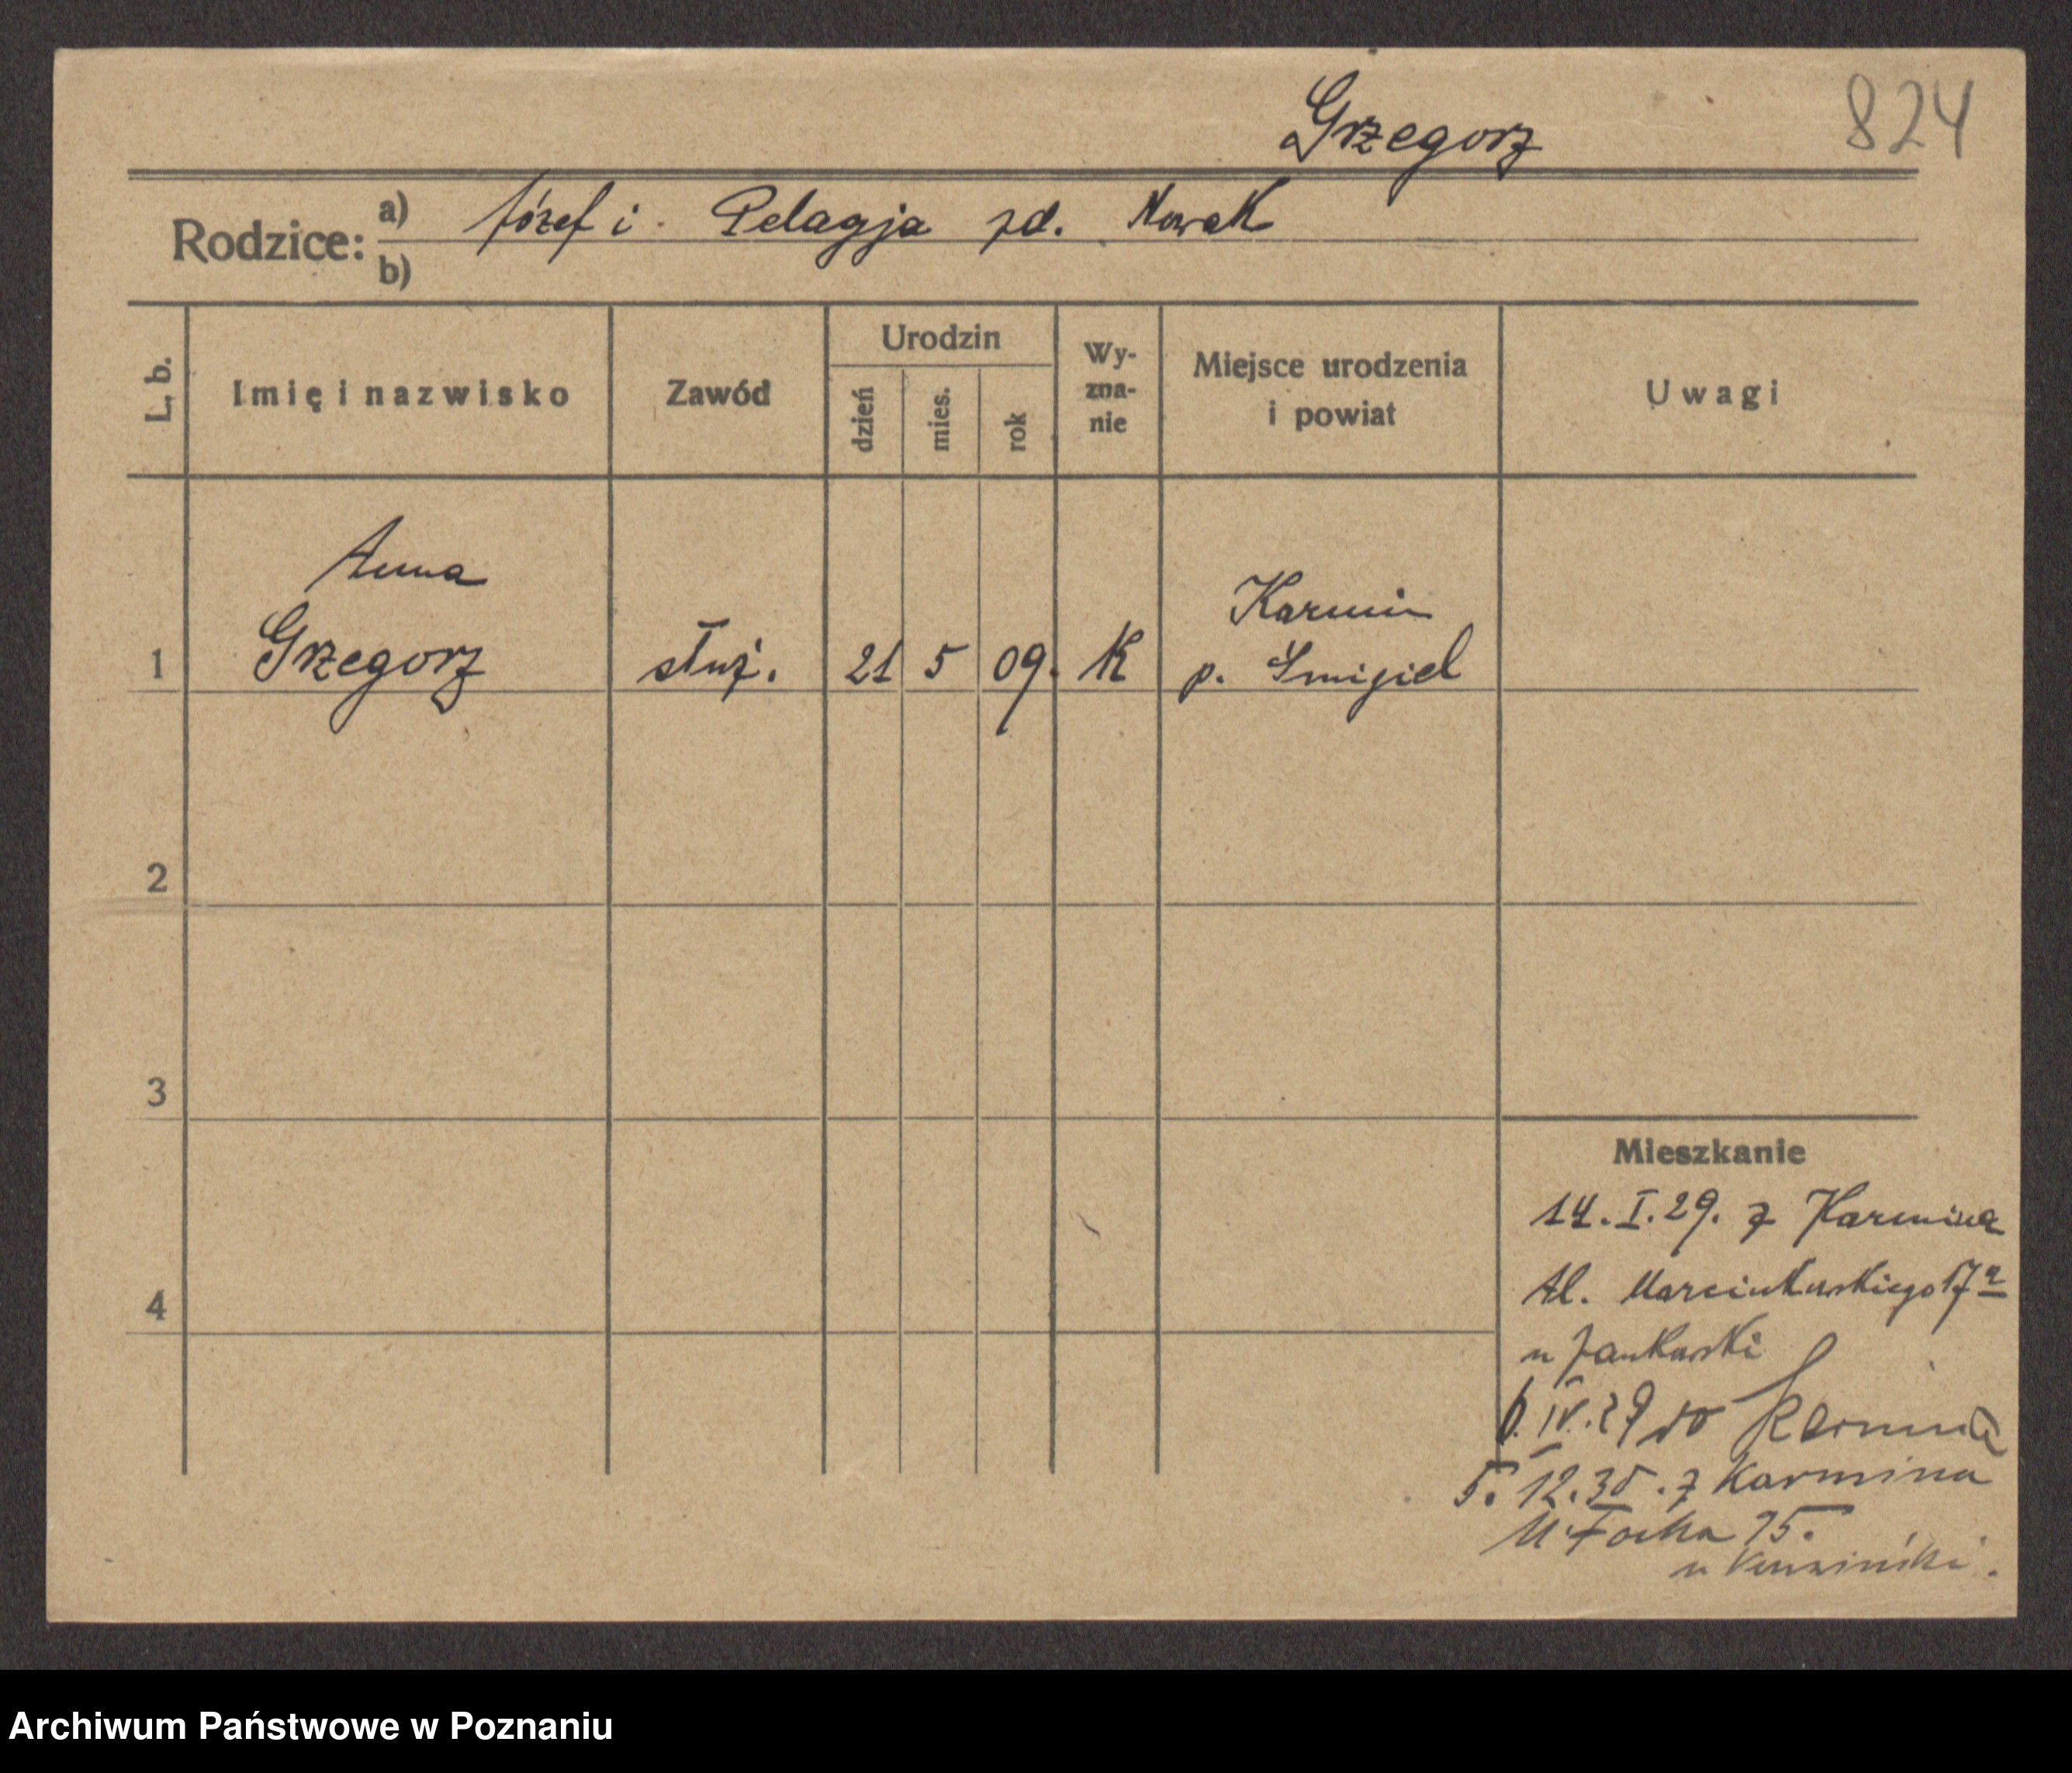 Grzegorz 824
Rodzice: a) Józef i Pelagja zd. Nowak
b)
L. b. Imię i nazwisko Zawód Urodzin dzień mies. rok Wy-zna-nie Miejsce urodzenia i powiat Uwagi
Anna
Karmin
1 Grzegorz służ. 21 5 09. K p. Śmigiel
2
3
Mieszkanie
14. I. 29. z Karmina
Al. Marcinkowskiego 17a
4
u Jankowski
IV. 29 do Karmina
5. 12. 30. z Karmina
M. Focha 75.
u
Archiwum Państwowe w Poznaniu